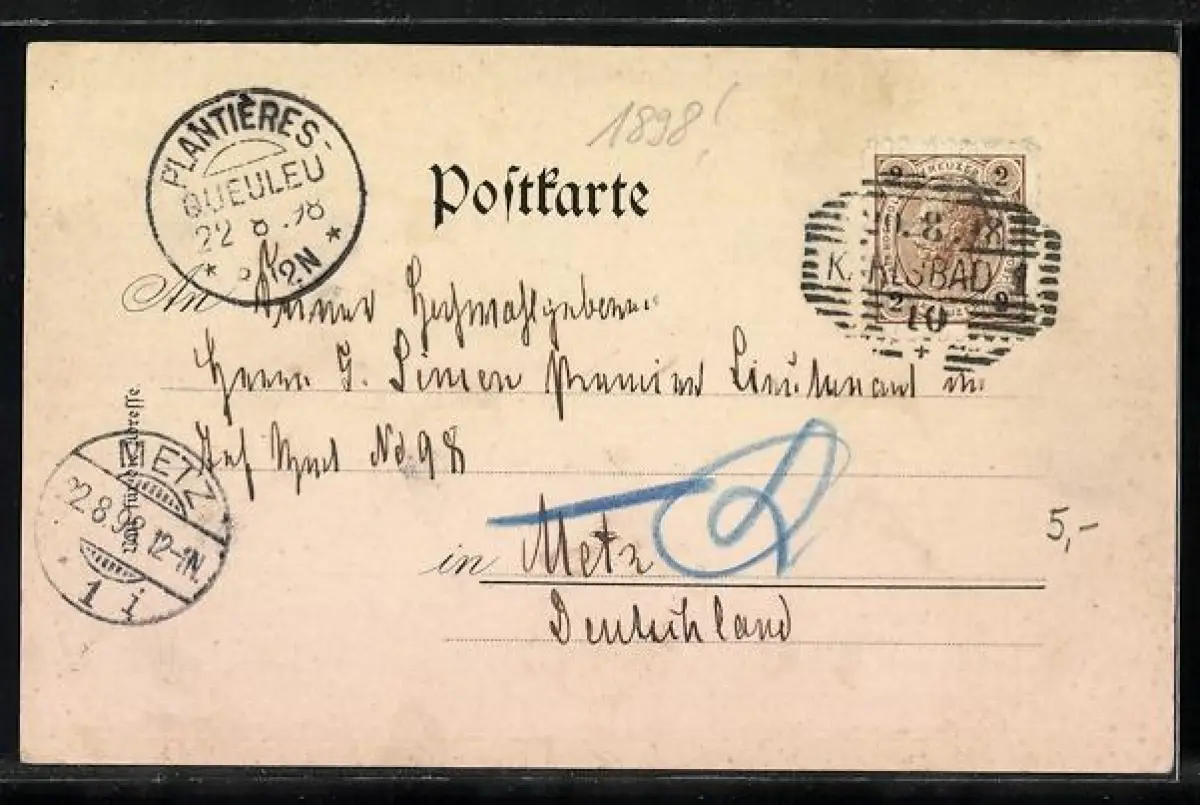 1898!
PLANTIÈRES-
QUEULEU
22 8 .98
* 2N *
Postkarte
2 KREUZER 2
.8.98
KARLSBAD 1
10
+
2 2
An Seiner Hochwohlgeboren
Herrn G. Simon Premier Lieutenant im
Inf Rgmt No 98
Nur für die Adresse.
METZ
22.8.98 12-1N
1 i
in Metz
5,-
Deutschland